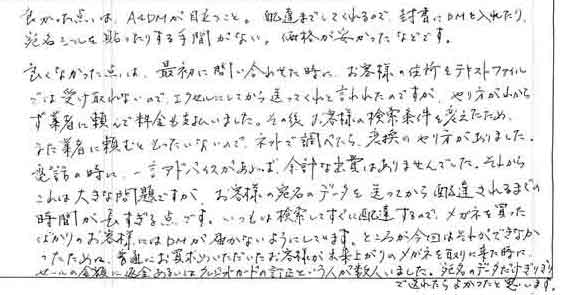 良かった点は、A4DMが目立つこと。配達までしてくれるので、封書にDMを入れたり、
宛名シールを貼ったりする手間がない。価格が安かったなどです。
良くなかった点は、最初に問い合わせた時に、お客様の住所をテキストファイル
では受け取れないので、エクセルにしてから送ってくれと言われたのですが、やり方がわから
ず業者に頼んで料金も支払いました。その後、お客様の検索条件を変えたため、
また業者に頼むともったいないので、ネットで調べたら、変換のやり方がありました。
電話の時に、一言アドバイスがあれば、余計な出費はありませんでした。それから
これは大きな問題ですが、お客様の宛名のデータを送ってから配達されるまでの
時間が長すぎる点です。いつもは検索してすぐに配達するので、メガネを買った
ばかりのお客様にはDMが届かないようにしています。ところが今回はそれができなか
ったために、普通にお買求めいただいたお客様が出来上がりのメガネを取りに来た時に、
セールの金額に返金あるいはクレジットカードの訂正という人が数人いました。宛名のデータだけギリギリ
で送れたらよかったと思います。